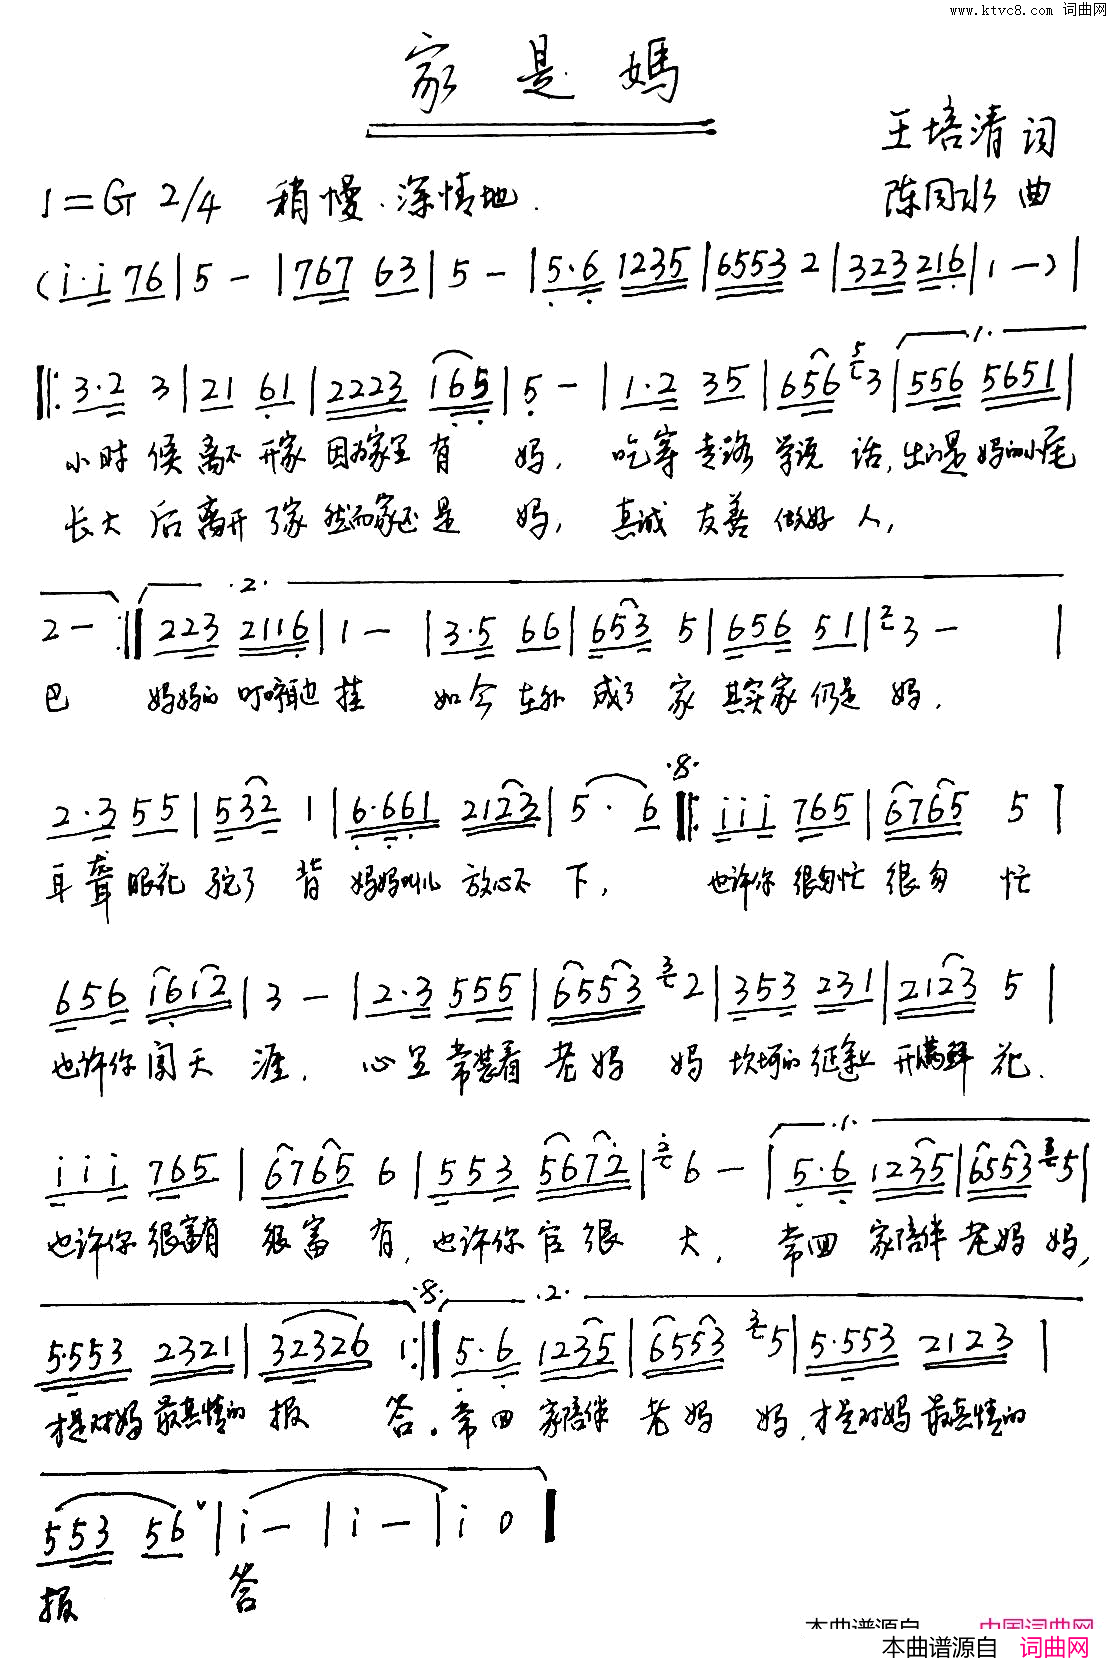 www.ktvc8.com 词曲网
家是媽
王培清 词
陈同水 曲
1=G 2/4 稍慢.深情地.
(i·i 76|5 -|767 63|5 -|5·6 1235|6553 2|323 216|1 -)|
1.
‖:3·2 3|21 61|2223 165|5 -|1·2 35|656 5 3|556 5651|
小时 候 离不 开家 因为家里 有 妈, 吃穿 走路 学说 话, 出门是 妈的小尾
长大 后 离开 了家 然而家还 是 妈, 真诚 友善 做好 人,
2.
2 - :‖223 2116|1 - |3·5 66|653 5|656 51|2 3 - |
巴 妈妈的 叮咛耳边 挂 如今 在外 成了 家 其实家 仍是 妈.
2·3 55|532 1|6·661 2123|5· 6‖:i i i 765|6765 5|
耳聋 眼花 驼了 背 妈妈 放心不 下, 也许你 很匆忙 很匆 忙
656 1612|3 - |2·3 555|6553 3 2|353 231|2123 5|
也许你 闯天 涯. 心里 常装着 老妈 妈 坎坷的 征途上 开满鲜 花.
1.
i i i 765|6765 6|553 5672|2 6 - |5·6 1235|6553 3 5|
也许你 很富有 很富 有, 也许你 官很 大, 常回 家陪伴 老妈 妈,
2.
5·553 2321|32326 1:‖5·6 1235|6553 3 5|5·553 2123|
才是对妈 最真情的 报 答。常回 家陪伴 老妈 妈,才是对妈 最真情的
553 56|i - |i - |i 0‖
报 答
本曲谱源自 中国词曲网
本曲谱源自 词曲网